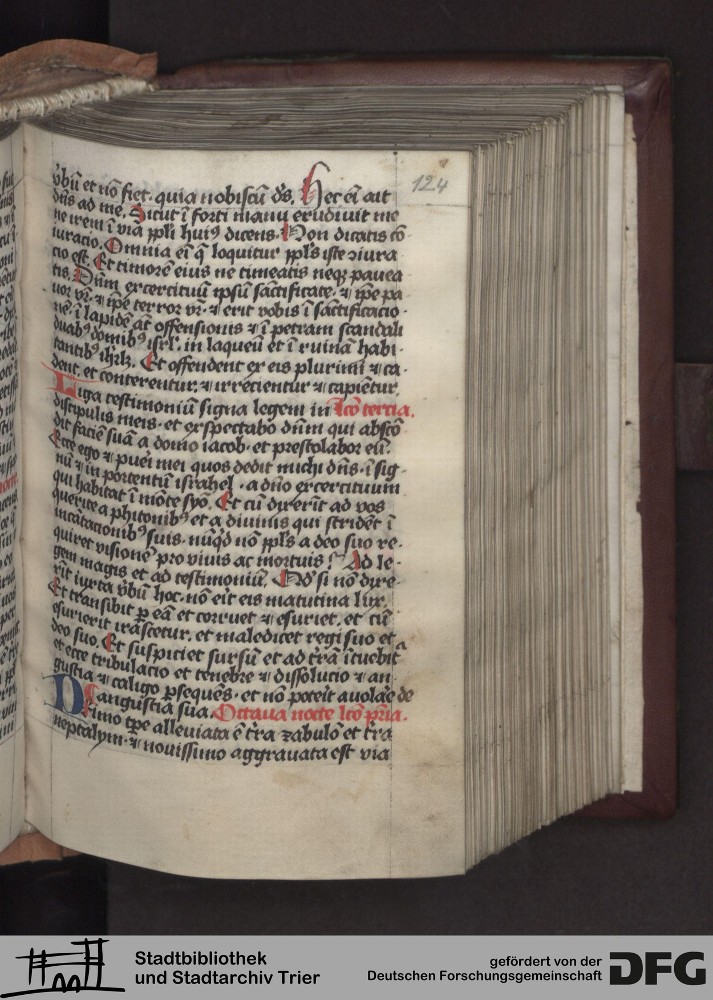 124
v̄bū et nō fiet. quia nobiscū ds̄. Hec eī ait
dn̄s ad me. Sicut ī forti manu erudiuit me
ne irem ī via ppl̄i huiꝰ dicens. Non dicatis cō
iuracio. Omnia eī q̄ loquitur ppl̄s iste ɔiura
cio est. Et timorē eius ne timeatis neqꝫ pauea
tis. Dn̄m exercituū ip̄sū sāctificate. ⁊ ip̄e pa
uor vr̄. ⁊ ip̄e terror vr̄. ⁊ erit vobis ī sāctificacio
nē. ī lapidē āt offensionis ⁊ ī petram scandali
duabꝰ domibꝰ isrl̄. in laqueū et ī ruinā habi
tantibꝰ ihrl̄ꝫ. Et offendent ex eis plurimi ⁊ ca
dent. et conterentur. ⁊ irrecientur ⁊ capiētur.
Liga testimoniū signa legem in lc̄o tercia.
discipulis meis. et exspectabo dn̄m qui abscō
dit faciē suā a domo iacob. et prestolabor eū.
Ecce ego ⁊ pueī mei quos dedit michi dn̄s. ī sig
nū ⁊ in portentū israhel. a dn̄o exercituum
qui habitat ī mōte syō. Et cū dixerīt ad vos
querite a phitonibꝰ et a diuinis qui stridēt ī
incātacionibꝰ suis. nūqd nō ppl̄s a deo suo re
quiret visionē pro viuis ac mortuis? Ad le
gem magis et ad testimoniū. Qd' si nō dixe
rīt iuxta v̄bū hoc. nō eīt eis matutina lux.
Et transibit ꝑ eā et corruet ⁊ esuriet. et cū
esurierit irascetur. et maledicet regi suo et
deo suo. Et suspiciet sursū et ad t̄rā ītuebit
et ecce tribulacio et tenebre ⁊ dissolucio ⁊ an
gustia ⁊ caligo ꝑsequēs. et nō poteīt auolaē de
angustia sua. Octaua nocte lc̄o pr̄ia.
Primo tp̄e alleuiata ē t̄ra zabulō et t̄ra
neptalym. ⁊ nouissimo aggrauata est via
Stadtbibliothek
und Stadtarchiv Trier
gefördert von der
Deutschen Forschungsgemeinschaft
DFG